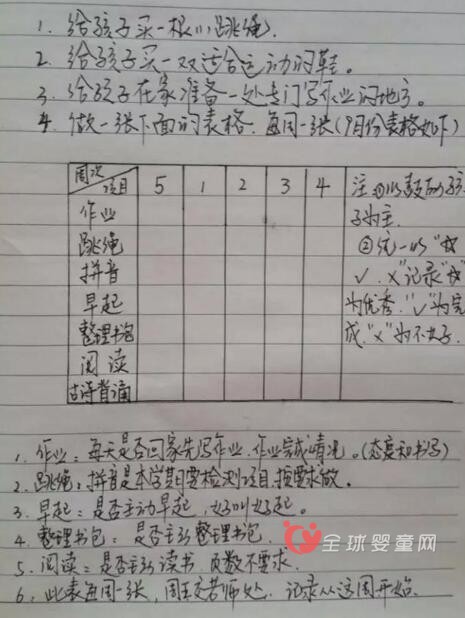 1. 给孩子买一根小跳绳.
2. 给孩子买一双适合运动的鞋。
3. 给孩子在家准备一处专门写作业的地方。
4. 做一张下面的表格. 每周一张(9月份表格如下)
周次 项目 5 1 2 3 4 注:①以鼓励孩
作业 子为主.
跳绳 ②统一以"
拼音 ✓. ×"记录"
早起 为优秀."✓"为完
整理书包 成."×"为不太好.
阅读
古诗背诵
1. 作业:每天是否回家先写作业.作业完成情况。(态度和书写)
2. 跳绳:拼音是本学期要检测项目.按要求做.
3. 早起:是否主动早起.好叫好起。
4. 整理书包:是否主动整理书包.
5. 阅读:是否主动读书.页数不要求.
6. 此表每周一张,周五交老师处.记录从这周开始.
全球婴童网